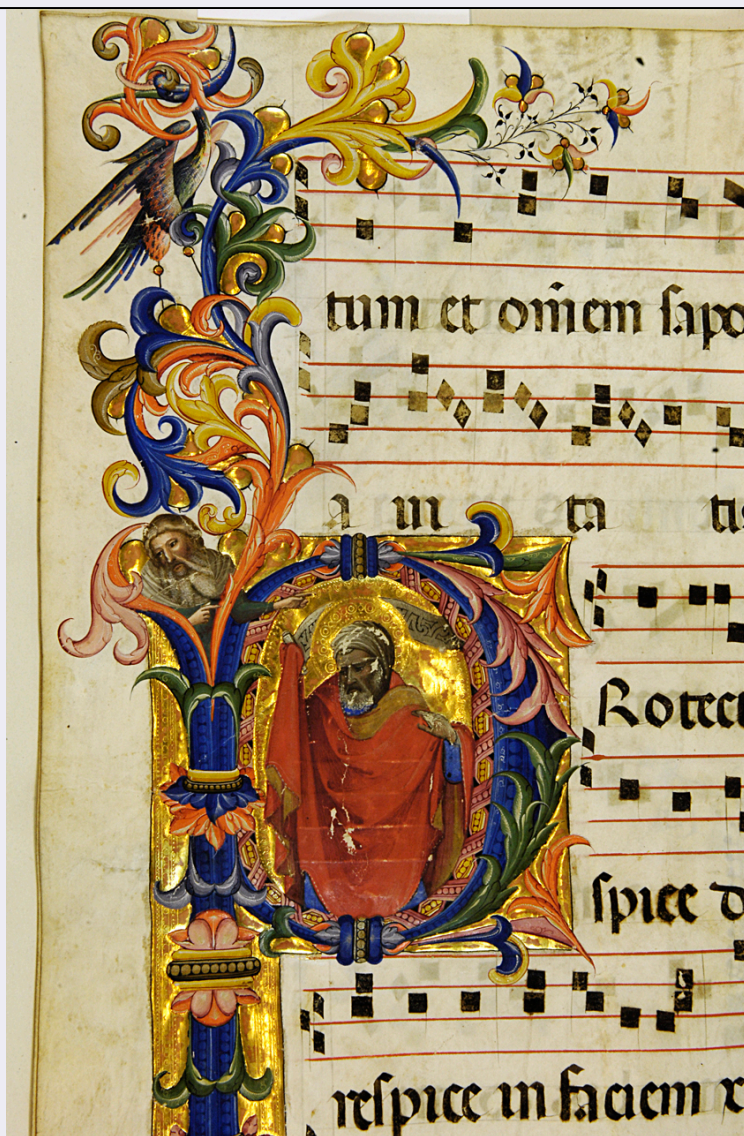 tum et om̄em sapo
a ui ta ti
P Rotect
spice d
respice in faciem x